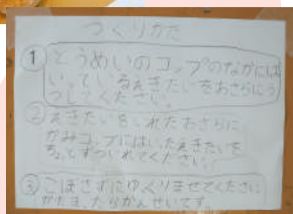 つくりかた
① とうめいのコップのなかには
いっているえきたいをおさらにう
つしてください。
② えきたいをいれたおさらに
かみコップにはいったえきたいを
ちょとずついれてください。
③ こぼさずにゆくりまぜてください
かたまったらかんせいです。